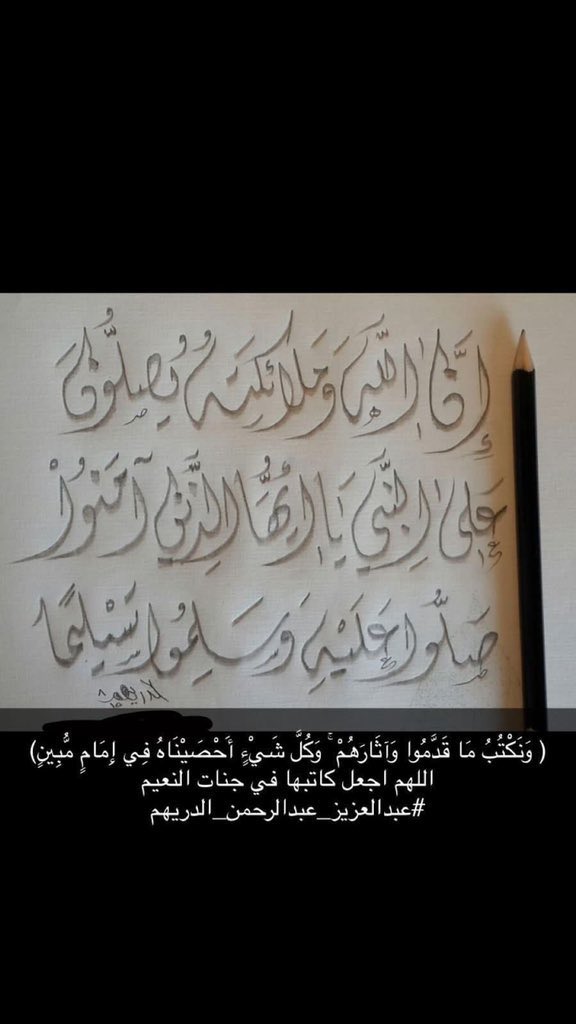 إِنَّ اللَّهَ وَمَلَائِكَتَهُ يُصَلُّونَ
عَلَى النَّبِيِّ يَا أَيُّهَا الَّذِينَ آمَنُواْ
صَلُّوا عَلَيْهِ وَسَلِّمُوا تَسْلِيمًا
الدريهم
( وَنَكْتُبُ مَا قَدَّمُوا وَآثَارَهُمْ ۚ وَكُلَّ شَيْءٍ أَحْصَيْنَاهُ فِي إِمَامٍ مُّبِينٍ)
اللهم اجعل كاتبها في جنات النعيم
#عبدالعزيز_عبدالرحمن_الدريهم